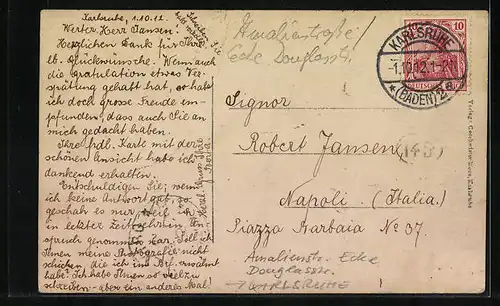 Karlsruhe, 1.10.12.
Werter Herr Jansen!
Herzlichen Dank für Ihre
lb. Glückwünsche. Wenn auch
die Gratulation etwas Ver-
spätung gehabt hat, so habe
ich doch grosse Freude em-
pfunden, dass auch Sie an
mich gedacht haben.
Ihre frdl. Karte mit der
schönen Ansicht habe ich
dankend erhalten.
Entschuldigen Sie, wenn
ich keine Antwort gab, so
geschah es nur, weil ich
in letzter Zeit sehr in An-
spruch genommen war. Soll ich
Ihnen meine Photografie nicht
schicken, die ich im Brief erwähnt
habe? Ich habe Ihnen so viel zu
schreiben - aber ein anderes Mal!
Schreiben Sie
bald wieder
Amalienstraße/
Ecke Douglasstr.
10
KARLSRUHE
(BADEN)
Signor
Robert Jansen,
Napoli (Italia.)
Piazza Barbaia No 37.
Amalienstr. Ecke
Douglasstr.
KARLSRUHE
Verlag: Gebrüder Karlsruhe